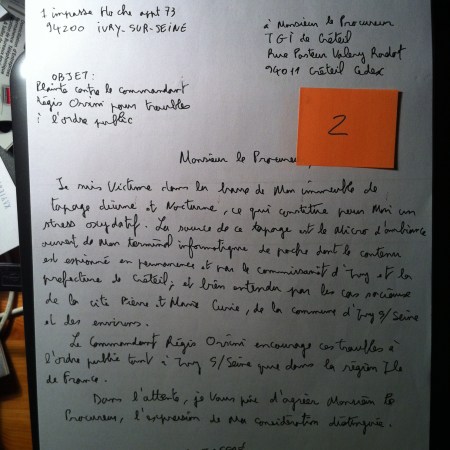 1 impasse Hoche appt 73
94200 IVRY-SUR-SEINE
à Monsieur le Procureur
TGI de Créteil
Rue Pasteur Valery Radot
94011 Créteil Cedex
OBJET:
Plainte contre le commandant
Régis Orsini pour troubles
à l'ordre public
2
Monsieur le Procureur,
Je suis victime dans la barre de Mon immeuble de
tapage diurne et Nocturne, ce qui constitue pour Moi un
stress oxydatif. La source de ce tapage est le Micro d'ambiance
ouvert de Mon terminal informatique de poche dont le contenu
est espionné en permanence et par le commissariat d'Ivry et la
préfecture de Créteil; et bien entendu par les cas sociaux
de la cité Pierre et Marie Curie, de la commune d'Ivry S/Seine
et des environs.
Le Commandant Régis Orsini encourage ces troubles à
l'ordre public tant à Ivry S/Seine que dans la région Ile
de France.
Dans l'attente, je vous prie d'agréer Monsieur le
Procureur, l'expression de Ma considération distinguée.